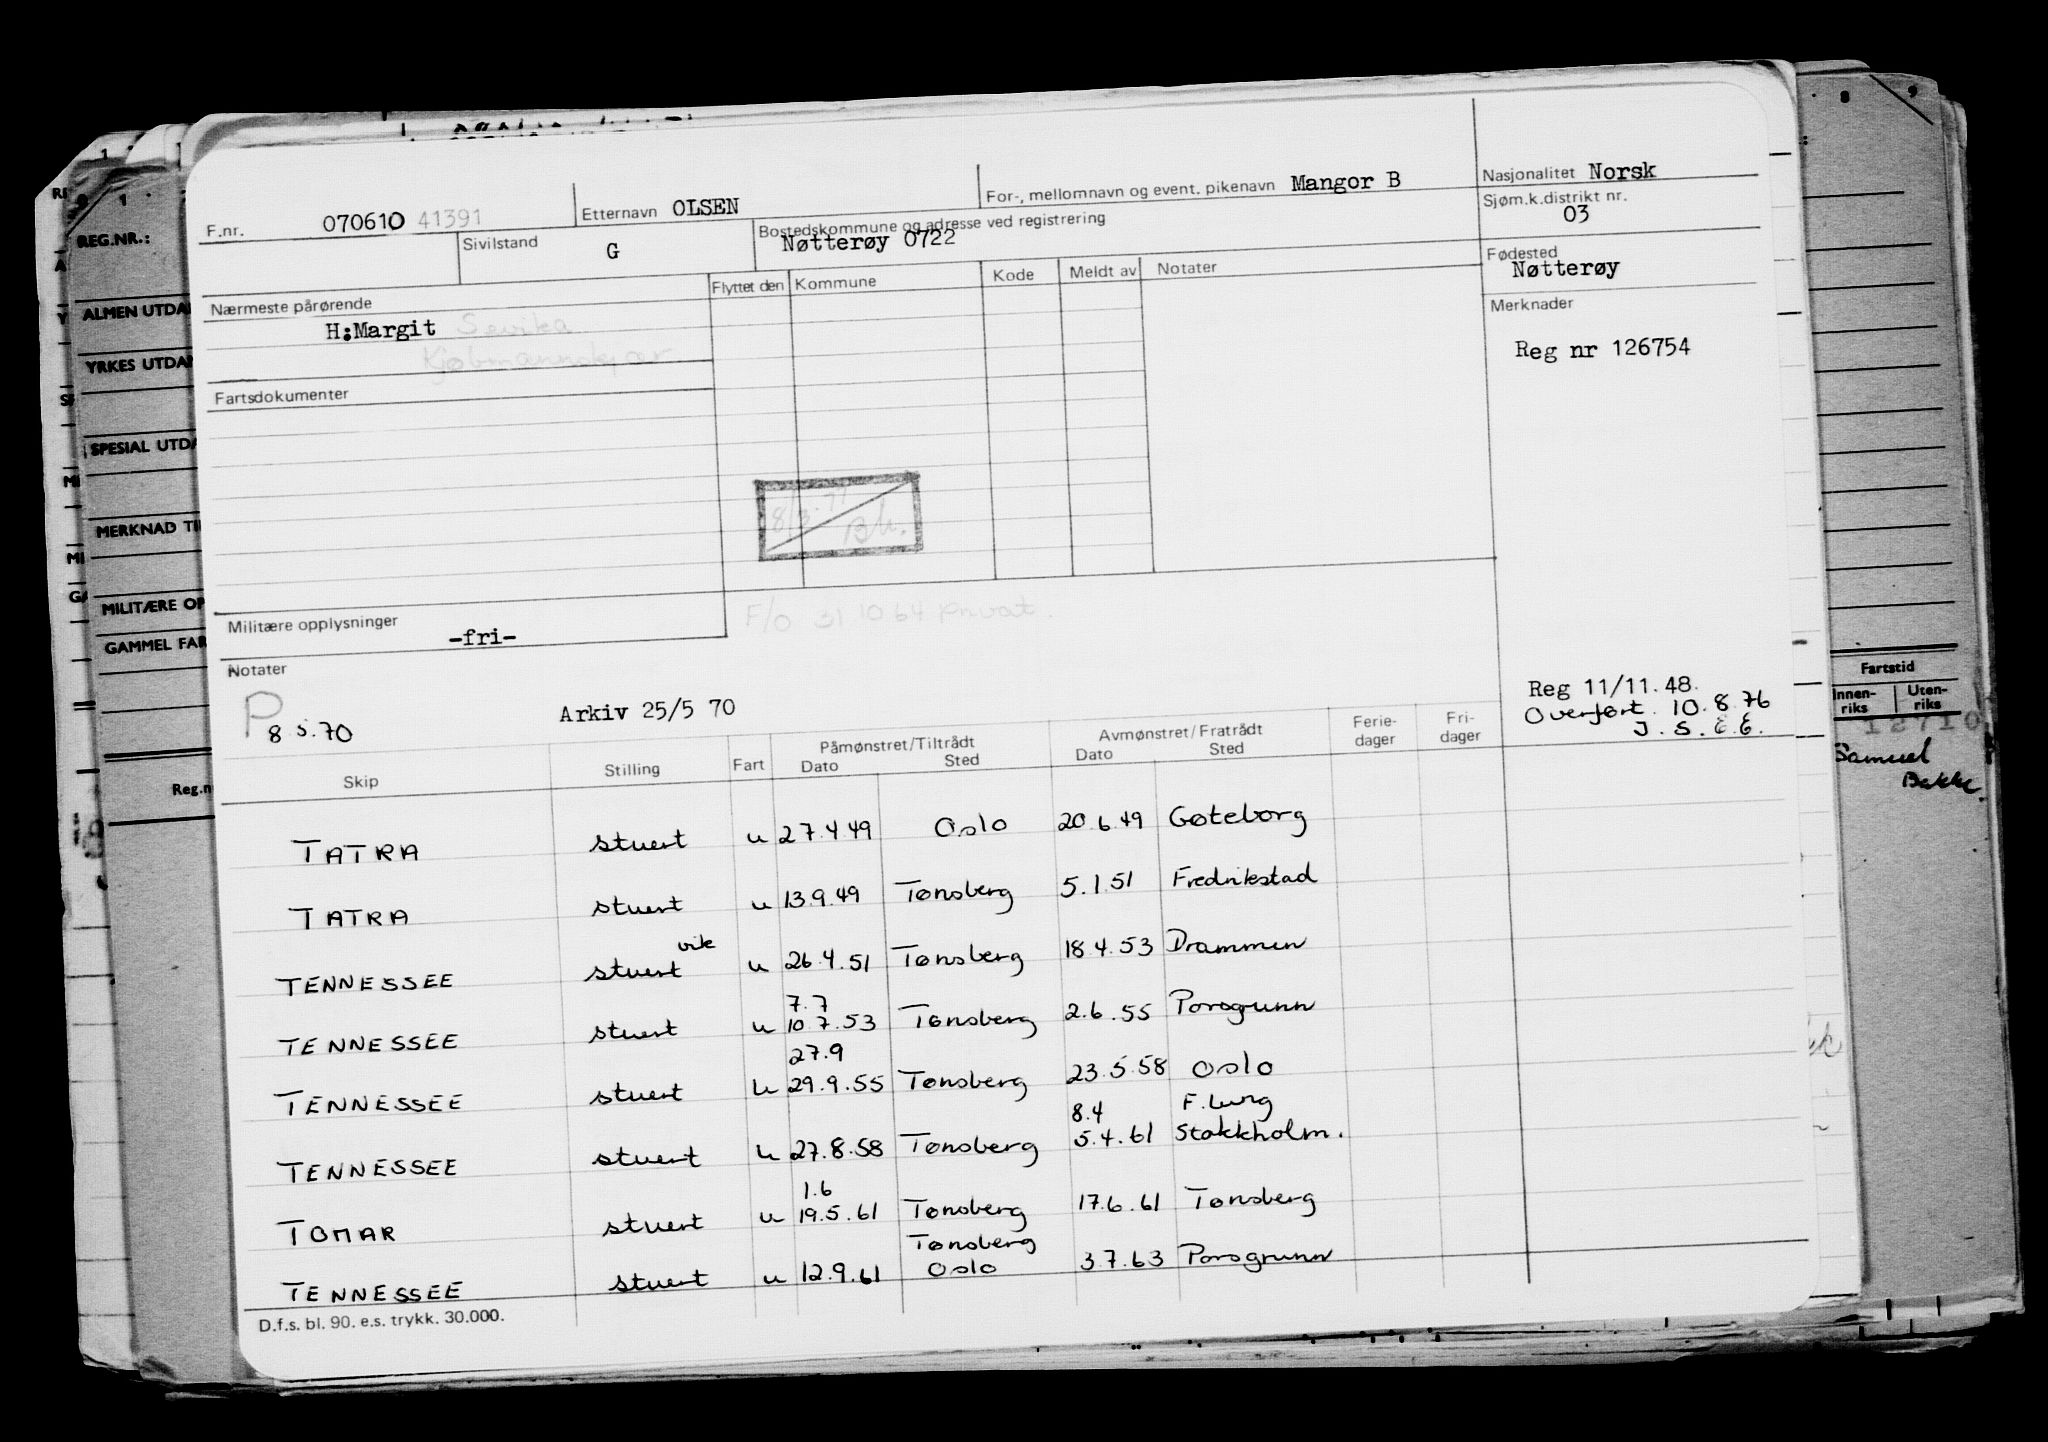 F.nr. 070610 41391
Etternavn OLSEN
For-, mellomnavn og event. pikenavn Mangor B
Nasjonalitet Norsk
Sjøm.k.distrikt nr.
03
Sivilstand
G
Bostedskommune og adresse ved registrering
Nøtterøy 0722
Fødested
Nøtterøy
Nærmeste pårørende
H:Margit
Flyttet den
Kommune
Kode
Meldt av
Notater
Merknader
Reg nr 126754
Fartsdokumenter
Militære opplysninger
-fri-
F/O 31 10 64 privat.
Notater
P
8 5.70
Arkiv 25/5 70
Reg 11/11.48.
Overført. 10.8.76
Skip
Stilling
Fart
Påmønstret/Tiltrådt
Dato
Sted
Avmønstret/Fratrådt
Dato
Sted
Ferie-
dager
Fri-
dager
TATRA stuert u 27.4.49 Oslo 20.6.49 Gøteborg
TATRA stuert u 13.9.49 Tønsberg 5.1.51 Fredrikstad
vik
TENNESSEE stuert u 26.4.51 Tønsberg 18.4.53 Drammen
7.7
TENNESSEE stuert u 10.7.53 Tønsberg 2.6.55 Porsgrunn
27.9
TENNESSEE stuert u 29.9.55 Tønsberg 23.5.58 Oslo
8.4
TENNESSEE stuert u 27.8.58 Tønsberg 5.4.61 Stokkholm.
1.6
TOMAR stuert u 19.5.61 Tønsberg 17.6.61 Tønsberg
Tønsberg
TENNESSEE stuert u 12.9.61 Oslo 3.7.63 Porsgrunn
D.f.s. bl. 90. e.s. trykk. 30.000.
REG.NR.:
ALMEN UTDA
YRKES UTDA
SPESIAL UTDA
MERKNAD TI
MILITÆRE OP
GAMMEL FAR
Reg.n
8
9
Fartstid
Innen-
riks
Uten-
riks
Samuel
Bakke.